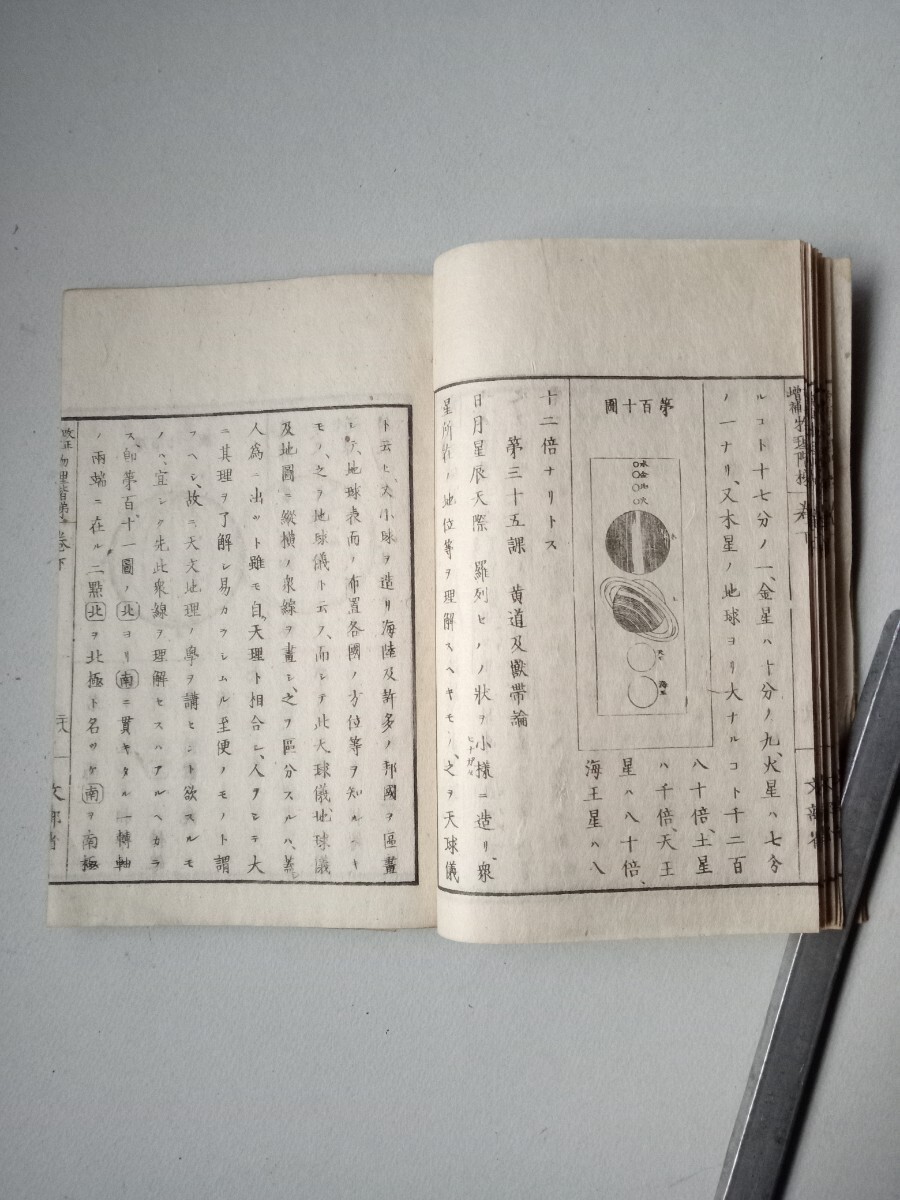 ルコト十七分ノ一、金星ハ十分ノ九、火星ハ七分
ノ一ナリ、又木星ノ地球ヨリ大ナルコト千二百
八十倍、土星
ハ千倍、天王
星ハ八十倍、
海王星ハ八
第百十圖
水
金
地
火
木
土
天王
海王
十二倍ナリトス
第三十五課 黄道及獸帶論
日月星辰天際 羅列ヒノノ狀ヲ小樣ニ造リ、衆
ヒナガタ
星所在ノ地位等ヲ理解スヘキモノ、之ヲ天球儀
増補物理階梯 卷下
文部省
ト云ヒ、大小球ヲ造リ海陸及許多ノ邦國ヲ區畫
シテ、地球表面ノ布置各國ノ方位等ヲ知ルヘキ
モノ、之ヲ地球儀ト云フ、而シテ此天球儀地球儀
及地圖ニ縱橫ノ衆線ヲ畫シ、之ヲ區分スルハ、蓋
人為ニ出ツト雖モ自天理ト相合シ、人ヲシテ大
ニ其理ヲ了解シ易カラシムル至便ノモノト謂
フヘシ、故ニ天文地理ノ學ヲ講セント欲スルモ
ノハ、宜シク先此衆線ヲ理解セスハアルヘカラ
ス、即第百十一圖ノ北ヨリ南ニ貫キタル一轉軸
ノ兩端ニ在ル二點北ヲ北極ト名ツケ南ヲ南極
改正 物理階梯 卷下
二十八
文部省